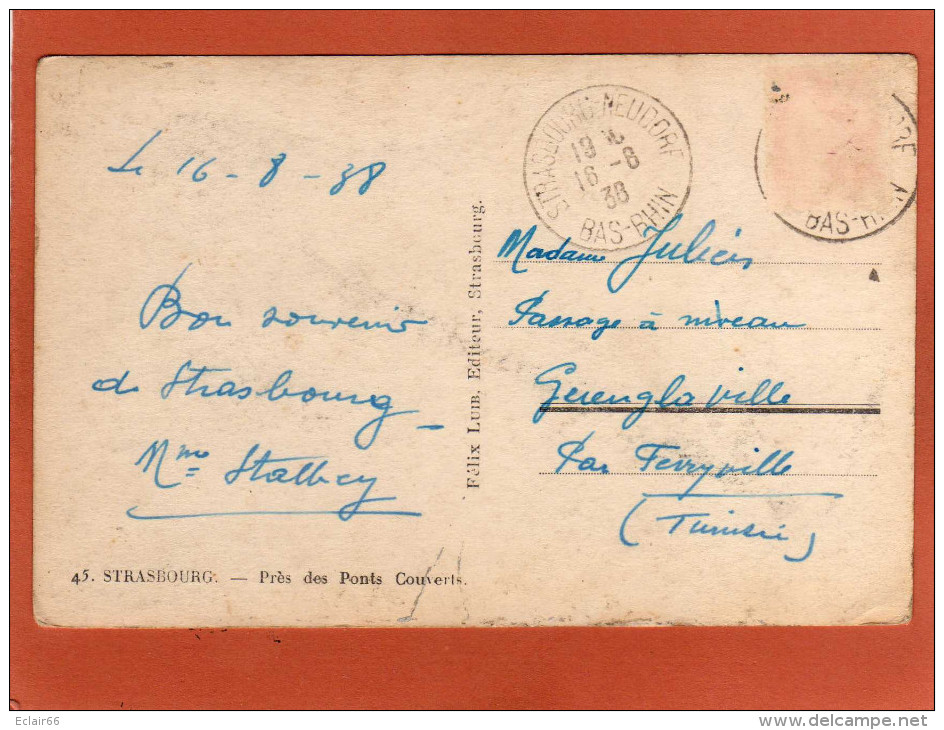 Le 16 - 8 - 38
Bon souvenir
de Strasbourg
Mme Stalbey
45. STRASBOURG. — Près des Ponts Couverts.
Félix LUIB, Editeur, Strasbourg.
STRASBOURG-NEUDORF
16 -8
38
BAS-RHIN
BAS-RHIN
Madame Julien
Passage à niveau
Guenglaville
Par Ferryville
(Tunisie)
Eclair66
www.delcampe.net